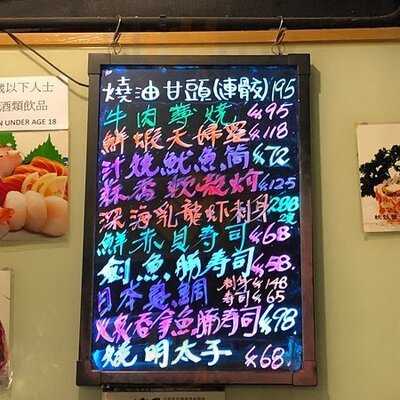 歲以下人士
酒類飲品
N UNDER AGE 18
燒油甘頭(連骹)195
牛肉薄燒 $95
鮮蝦天婦羅 $118
汁燒魷魚筒 $72
蒜香軟殼蚵 $125
深海乳龍蝦刺身 288
鮮赤貝寿司 $68
劍魚腩寿司 $58
日本真鯛 刺身 $148
寿司 $65
火炙吞拿魚腩寿司 $98
燒明太子 $68